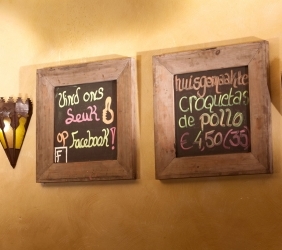 Vind ons
Leuk
op
Facebook!
F
huisgemaakte
Croquetas
de pollo
€4,50 (3st)